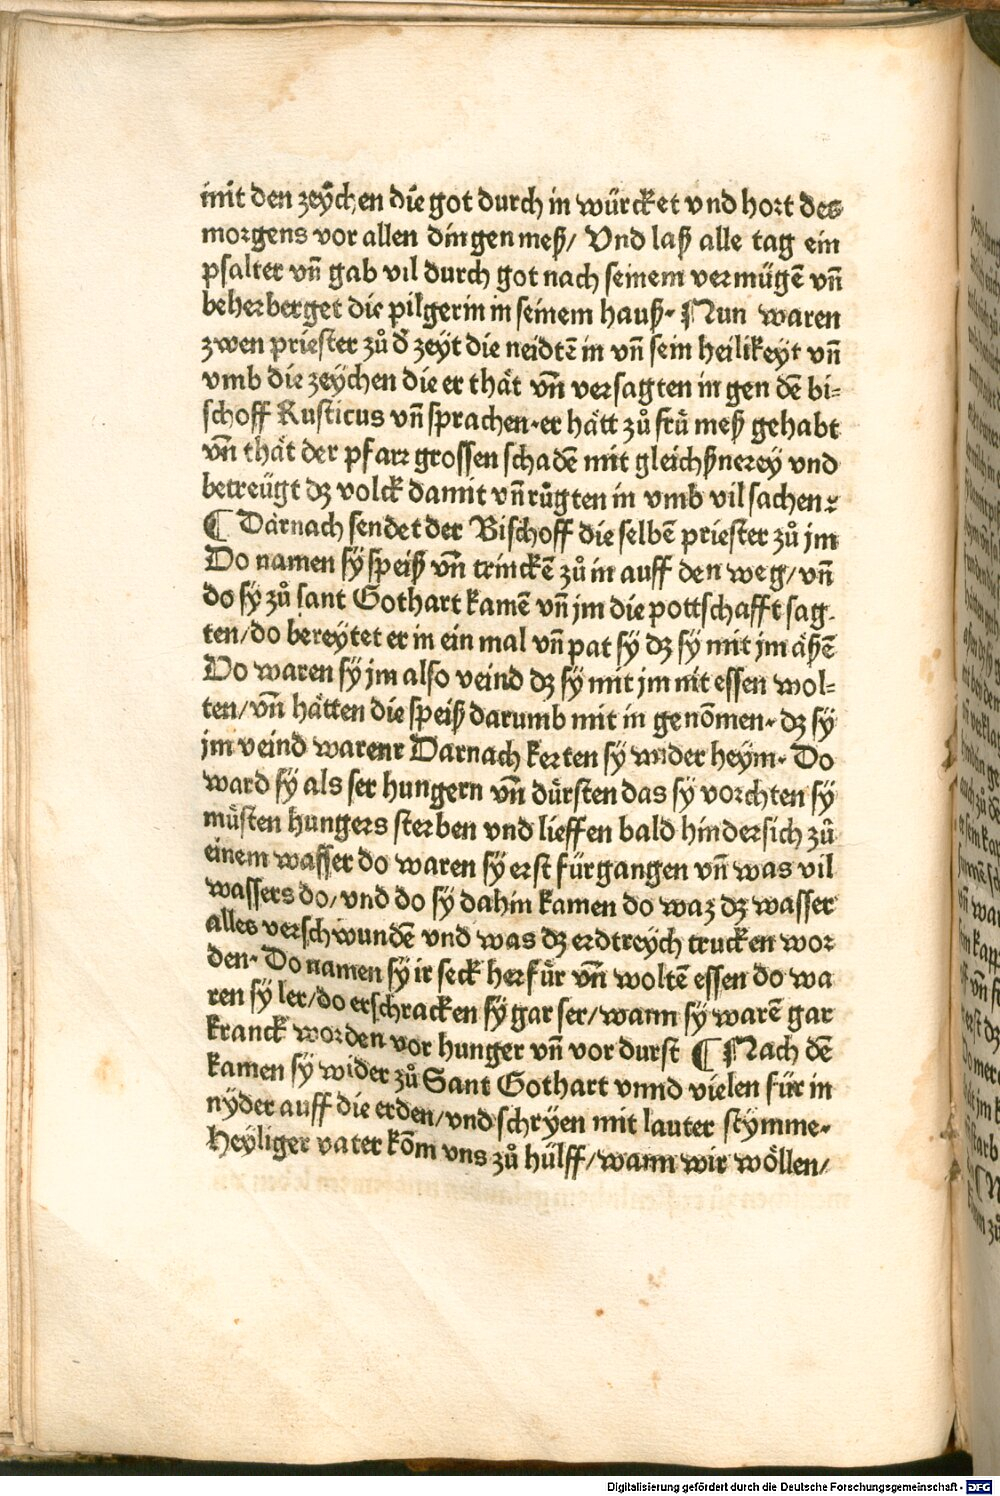 mit den zeychen die got durch in würcket vnd hort des
morgens vor allen dingen meß/ Vnd laß alle tag ein
psalter vn̄ gab vil durch got nach seinem vermügē vn̄
beherberget die pilgerin in seinem hauß. Nun waren
zwen priester zů d̕ zeyt die neidtē in vn̄ sein heilikeyt vn̄
vmb die zeychen die er thät vn̄ versagten in gen dē bi⸗
schoff Rusticus vn̄ sprachen. er hätt zů frů meß gehabt
vn̄ thät der pfarr grossen schadē mit gleichßnerey vnd
betreügt dz volck damit vn̄ růgten in vmb vil sachen.
¶ Darnach sendet der Bischoff die selbē priester zů jm
Do namen sy speiß vn̄ trinckē zů in auff den weg/ vn̄
do sy zů sant Gothart kamē vn̄ jm die pottschafft sag.
ten/ do bereytet er in ein mal vn̄ pat sy dz sy mit jm äßē
Do waren sy jm also veind dz sy mit jm nit essen wol⸗
ten/ vn̄ hätten die speiß darumb mit in genōmen. dz sy
jm veind warenr Darnach kerten sy wider heym. Do
ward sy als ser hungern vn̄ dürsten das sy vorchten sy
müsten hungers sterben vnd lieffen bald hindersich zů
einem wasser do waren sy erst fürgangen vn̄ was vil
wassers do/ vnd do sy dahin kamen do waz dz wasser
alles verschwundē vnd was dz erdtreych trucken wor
den. Do namen sy ir seck herfür vn̄ woltē essen do wa
ren sy ler/ do erschracken sy gar ser/ wann sy warē gar
kranck worden vor hunger vn̄ vor durst ¶ Nach dē
kamen sy wider zů Sant Gothart vnnd vielen für in
nyder auff die erden/ vnd schryen mit lauter stymme.
Heyliger vater kōm vns zů hülff/ wann wir wöllen/
Digitalisierung gefördert durch die Deutsche Forschungsgemeinschaft - DFG